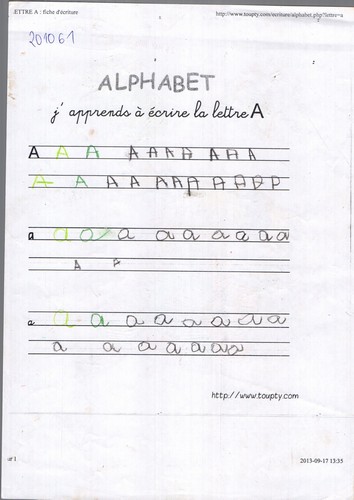 ETTRE A : fiche d'écriture http://www.toupty.com/ecriture/alphabet.php?lettre=a
201061
ALPHABET
j'apprends à écrire la lettre A
A A A A A A A A A A
A A A A A A A A A A P P
a a a a a a a a a a
A A
a a a a a a a a a
a a a a a a a
http://www.toupty.com
ur 1 2013-09-17 13:35